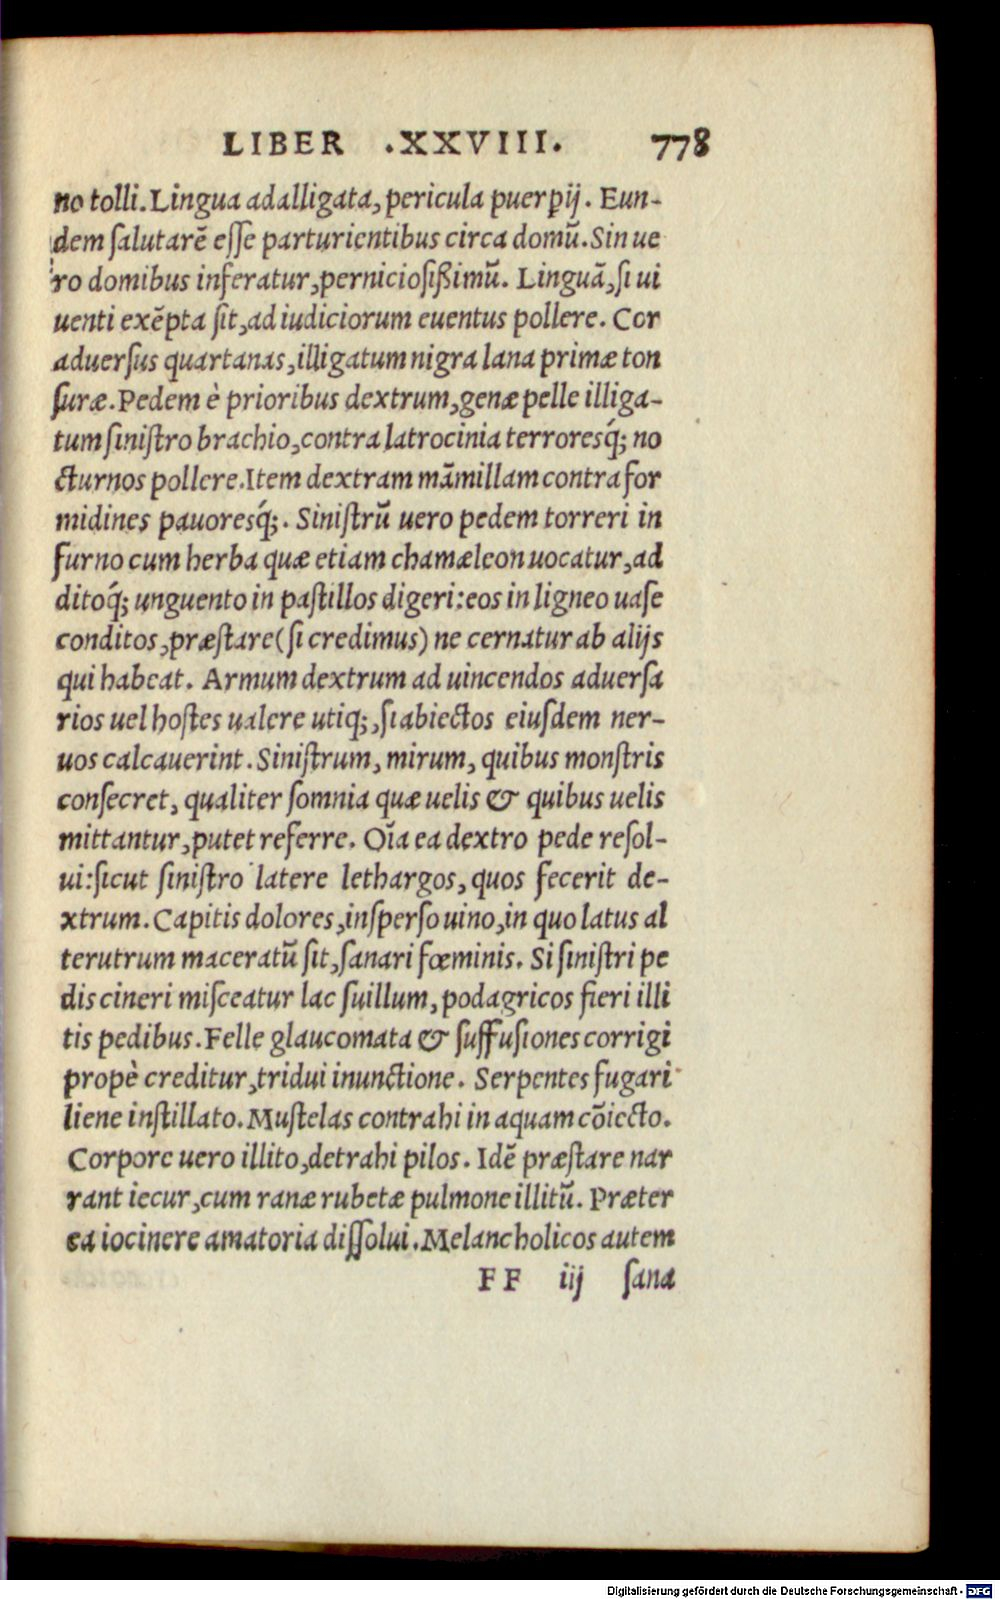 LIBER .XXVIII. 778
no tolli. Lingua adalligata, pericula puerꝑij. Eun-
dem ſalutarē eſſe parturientibus circa domū. Sin ue
ro domibus inferatur, pernicioſiſſimū. Linguā, ſi ui
uenti exēpta ſit, ad iudiciorum euentus pollere. Cor
aduerſus quartanas, illigatum nigra lana primæ ton
ſuræ. Pedem è prioribus dextrum, genæ pelle illiga-
tum ſiniſtro brachio, contra latrocinia terroresq́; no
cturnos pollere. Item dextram māmillam contra for
midines pauoresq́;. Siniſtrū uero pedem torreri in
furno cum herba quæ etiam chamæleon uocatur, ad
ditoq́; unguento in paſtillos digeri: eos in ligneo uaſe
conditos, præſtare (ſi credimus) ne cernatur ab alijs
qui habeat. Armum dextrum ad uincendos aduerſa
rios uel hoſtes ualere utiq;, ſi abiectos eiuſdem ner-
uos calcauerint. Siniſtrum, mirum, quibus monſtris
conſecret, qualiter ſomnia quæ uelis & quibus uelis
mittantur, putet referre. Oīa ea dextro pede reſol-
ui: ſicut ſiniſtro latere lethargos, quos fecerit de-
xtrum. Capitis dolores, inſperſo uino, in quo latus al
terutrum maceratū ſit, ſanari fœminis. Si ſiniſtri pe
dis cineri miſceatur lac ſuillum, podagricos fieri illi
tis pedibus. Felle glaucomata & ſuffuſiones corrigi
propè creditur, tridui inunctione. Serpentes fugari
liene inſtillato. Muſtelas contrahi in aquam cōiecto.
Corpore uero illito, detrahi pilos. Idē præſtare nar
rant iecur, cum ranæ rubetæ pulmone illitū. Præter
ea iocinere amatoria diſſolui. Melancholicos autem
FF iij ſana
Digitalisierung gefördert durch die Deutsche Forschungsgemeinschaft - DFG